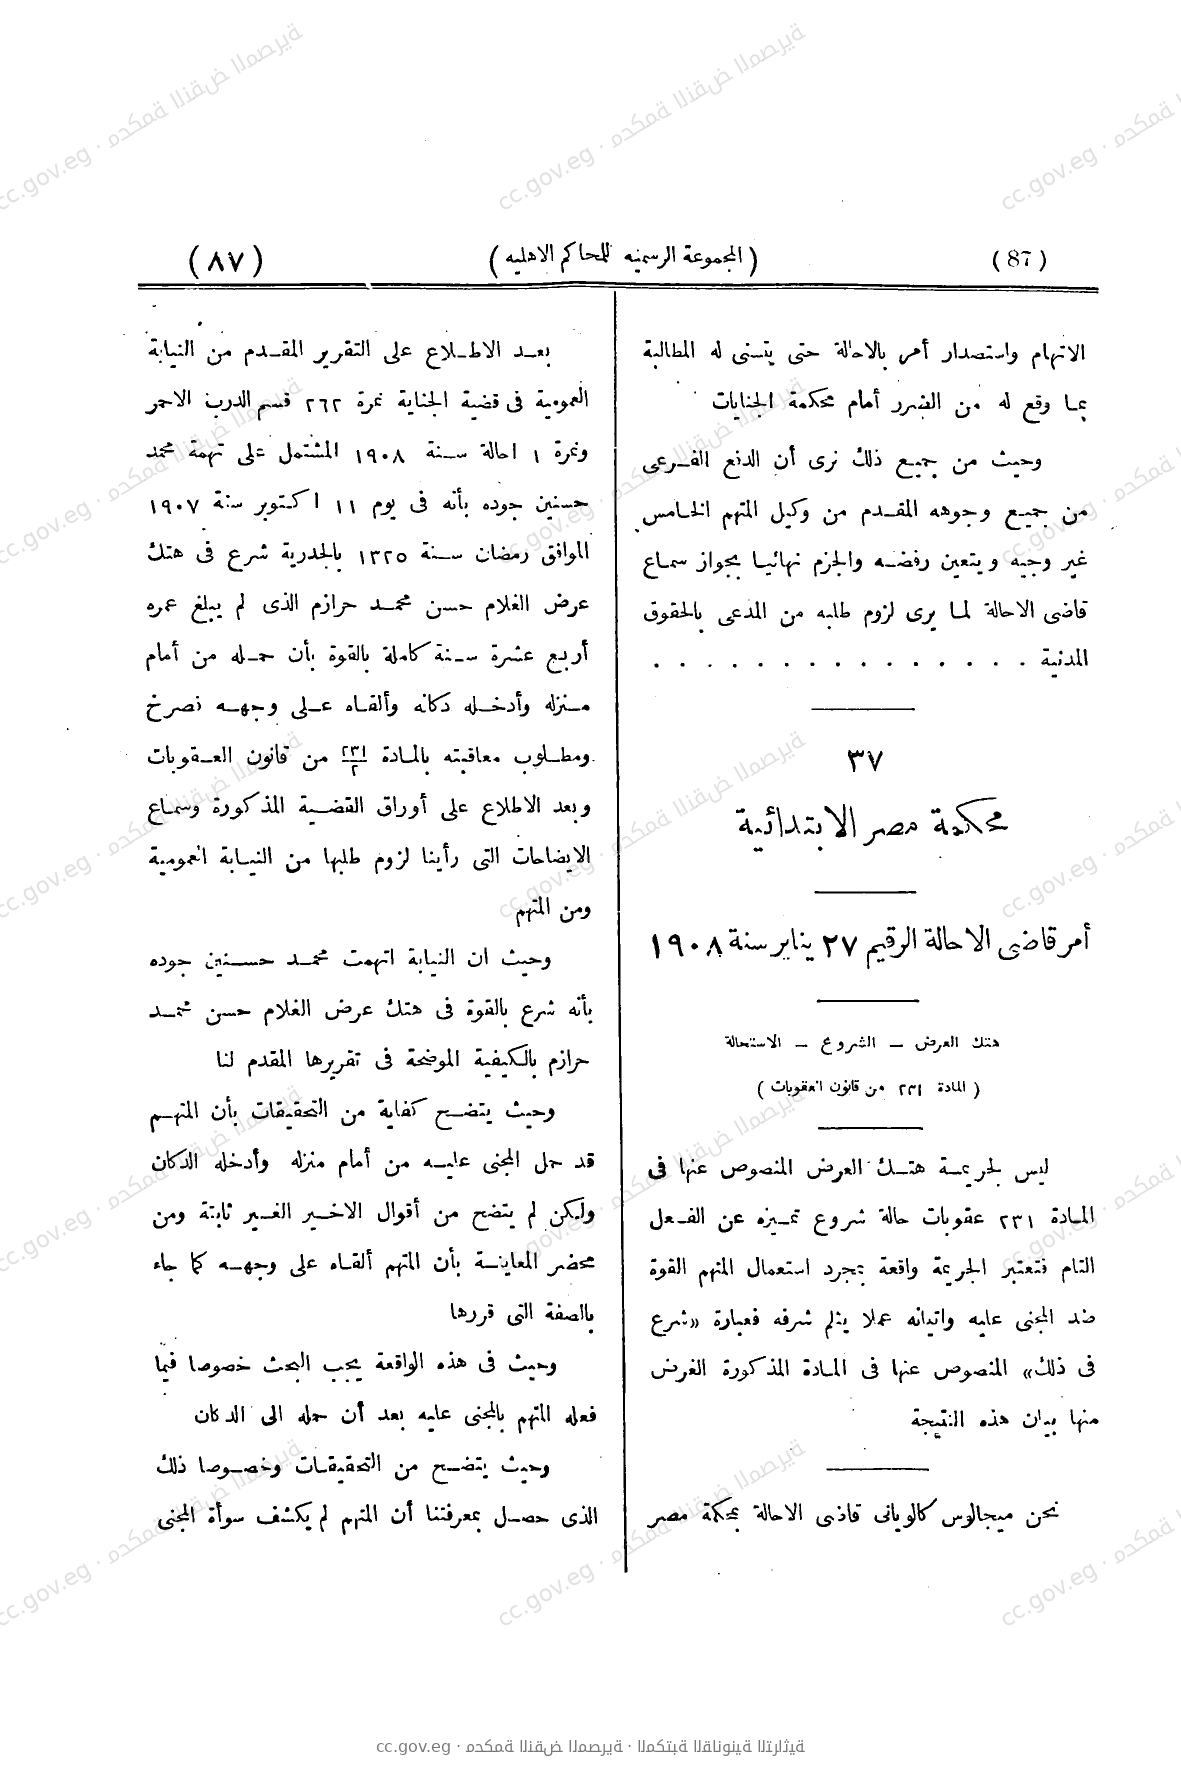 ( 87 )
( المجموعة الرسمية للمحاكم الاهلية )
( ٨٧ )
الاتهام واستصدار أمر بالاحالة حتى يتسنى له المطالبة
بما وقع له من الضرر أمام محكمة الجنايات
وحيث من جميع ذلك نرى أن الدفع الفرعى
من جميع وجوهه المقدم من وكيل المتهم الخامس
غير وجيه ويتعين رفضه والجزم نهائيا بجواز سماع
قاضى الاحالة لما يرى لزوم طلبه من المدعى بالحقوق
المدنية . . . . . . . . . . . . . . .
٣٧
محكمة مصر الابتدائية
أمر قاضى الاحالة الرقيم ٢٧ يناير سنة ١٩٠٨
هتك العرض – الشروع – الاستحالة
( المادة ٢٣١ من قانون العقوبات )
ليس لجريمة هتك العرض المنصوص عنها فى
المادة ٢٣١ عقوبات حالة شروع تميزه عن الفعل
التام فتعتبر الجريمة واقعة بمجرد استعمال المتهم القوة
ضد المجنى عليه واتيانه عملا يثلم شرفه فعبارة «شرع
فى ذلك» المنصوص عنها فى المادة المذكورة الغرض
منها بيان هذه النتيجة
نحن ميجالوس كالويانى قاضى الاحالة بمحكمة مصر
بعد الاطلاع على التقرير المقدم من النيابة
العمومية فى قضية الجناية نمرة ٢٦٢ قسم الدرب الاحمر
ونمرة ١ احالة سنة ١٩٠٨ المشتمل على تهمة محمد
حسنين جوده بأنه فى يوم ١١ اكتوبر سنة ١٩٠٧
الموافق رمضان سنة ١٣٢٥ بالجدرية شرع فى هتك
عرض الغلام حسن محمد حرازم الذى لم يبلغ عمره
أربع عشرة سنة كاملة بالقوة بأن حمله من أمام
منزله وأدخله دكانه وألقاه على وجهه فصرخ
ومطلوب معاقبته بالمادة ٢٣١/٢ من قانون العقوبات
وبعد الاطلاع على أوراق القضية المذكورة وسماع
الايضاحات التى رأينا لزوم طلبها من النيابة العمومية
ومن المتهم
وحيث ان النيابة اتهمت محمد حسنين جوده
بأنه شرع بالقوة فى هتك عرض الغلام حسن محمد
حرازم بالكيفية الموضحة فى تقريرها المقدم لنا
وحيث يتضح كفاية من التحقيقات بأن المتهم
قد حمل المجنى عليه من أمام منزله وأدخله الدكان
ولكن لم يتضح من أقوال الاخير الغير ثابتة ومن
محضر المعاينة بأن المتهم ألقاه على وجهه كما جاء
بالصفة التى قررها
وحيث فى هذه الواقعة يجب البحث خصوصا فيما
فعله المتهم بالمجنى عليه بعد أن حمله الى الدكان
وحيث يتضح من التحقيقات وخصوصا ذلك
الذى حصل بمعرفتنا أن المتهم لم يكشف سوأة المجنى
cc.gov.eg · محكمة النقض المصرية · المكتبة القانونية التراثية